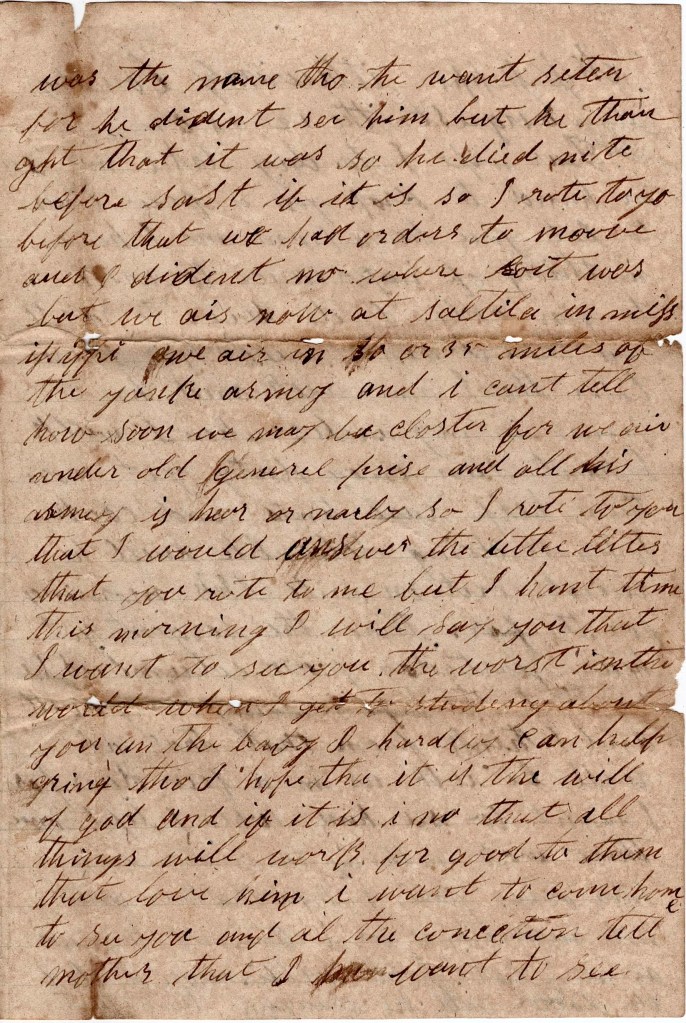 was the name tho he want seten
for he dident see him but he thou
ght that it was so he died nite
before last if it is so I rote to yo
before that we had orders to moove
and I dident no where it was
but we air now at saltila in miss
isippi we air in or 35 miles of
the yanke armey and i cant tell
how soon we may be closter for we air
under old general prise and all his
armey is hear or narby so I rote to you
that I would answer the letter
that you rote to me but I hant time
this morning I will say you that
I want to see you the worst in the
world when I get to studeng about
you an the baby I hardley can help
tho I hope tha it is the will
of god and if it is i no that all
things will work for good to them
that love him i want to come home
to see you and al the conection tell
mother that I want to see